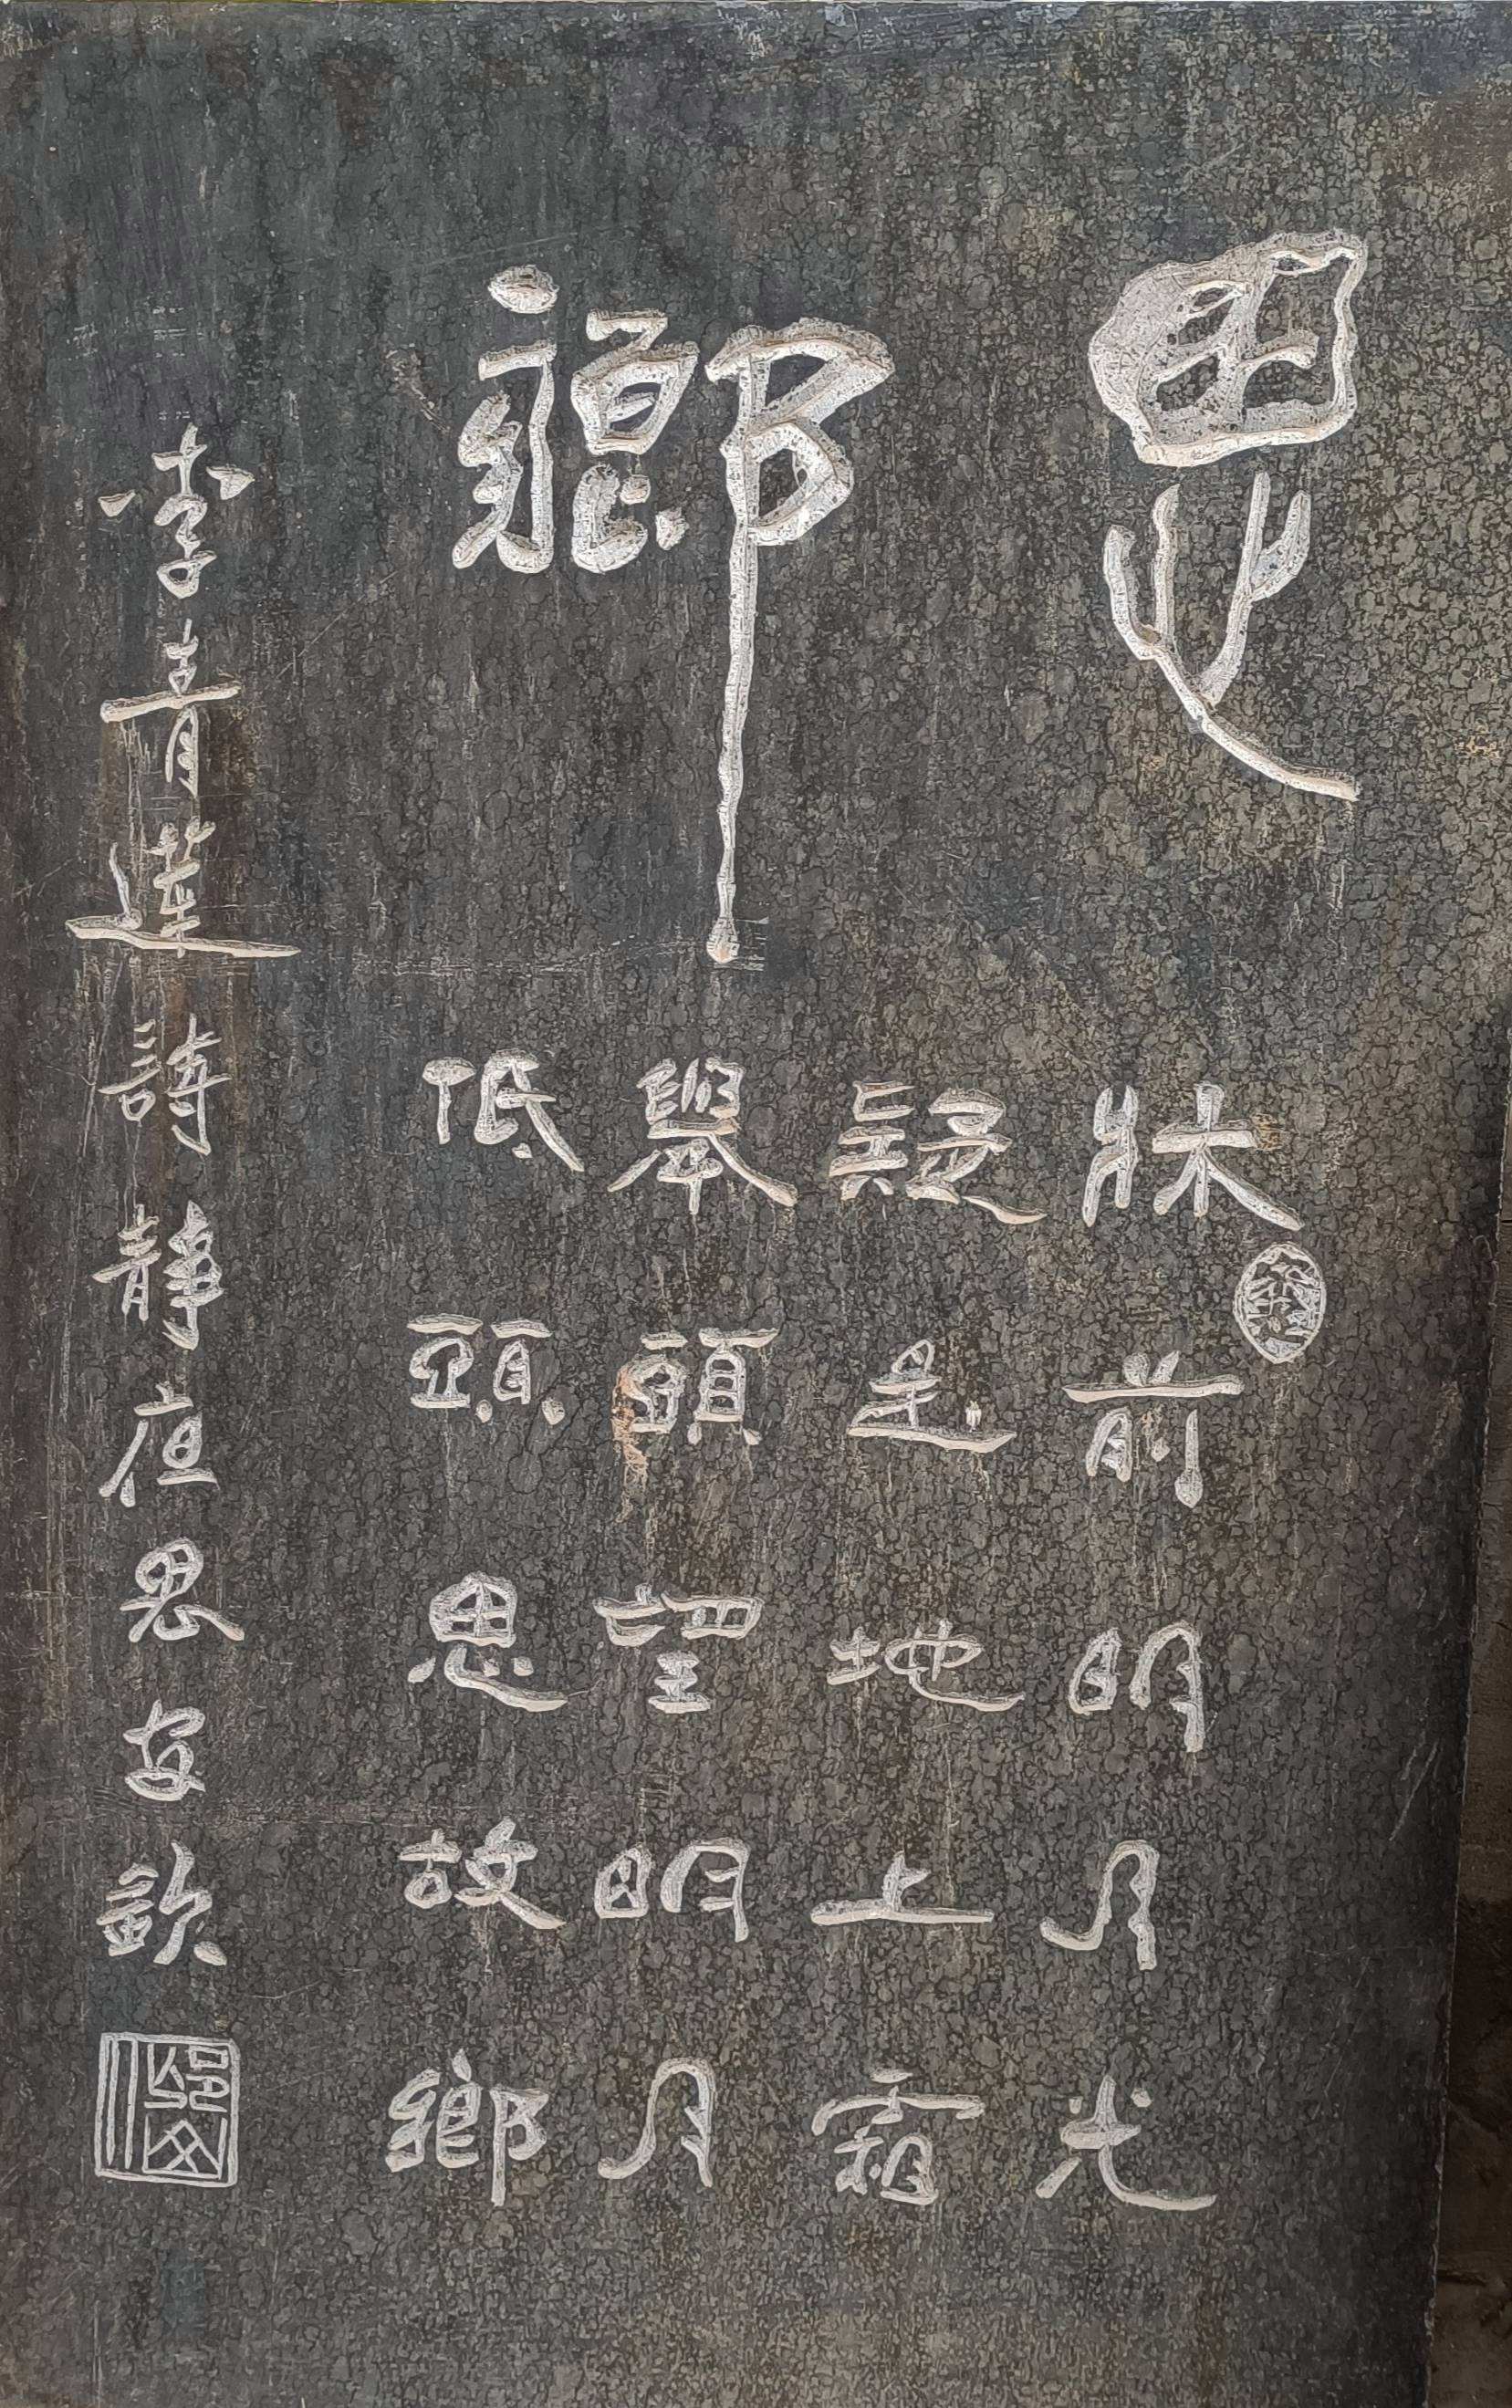 思鄉
牀前明月光
疑是地上霜
舉頭望明月
低頭思故鄉
李青蓮詩静夜思安歆